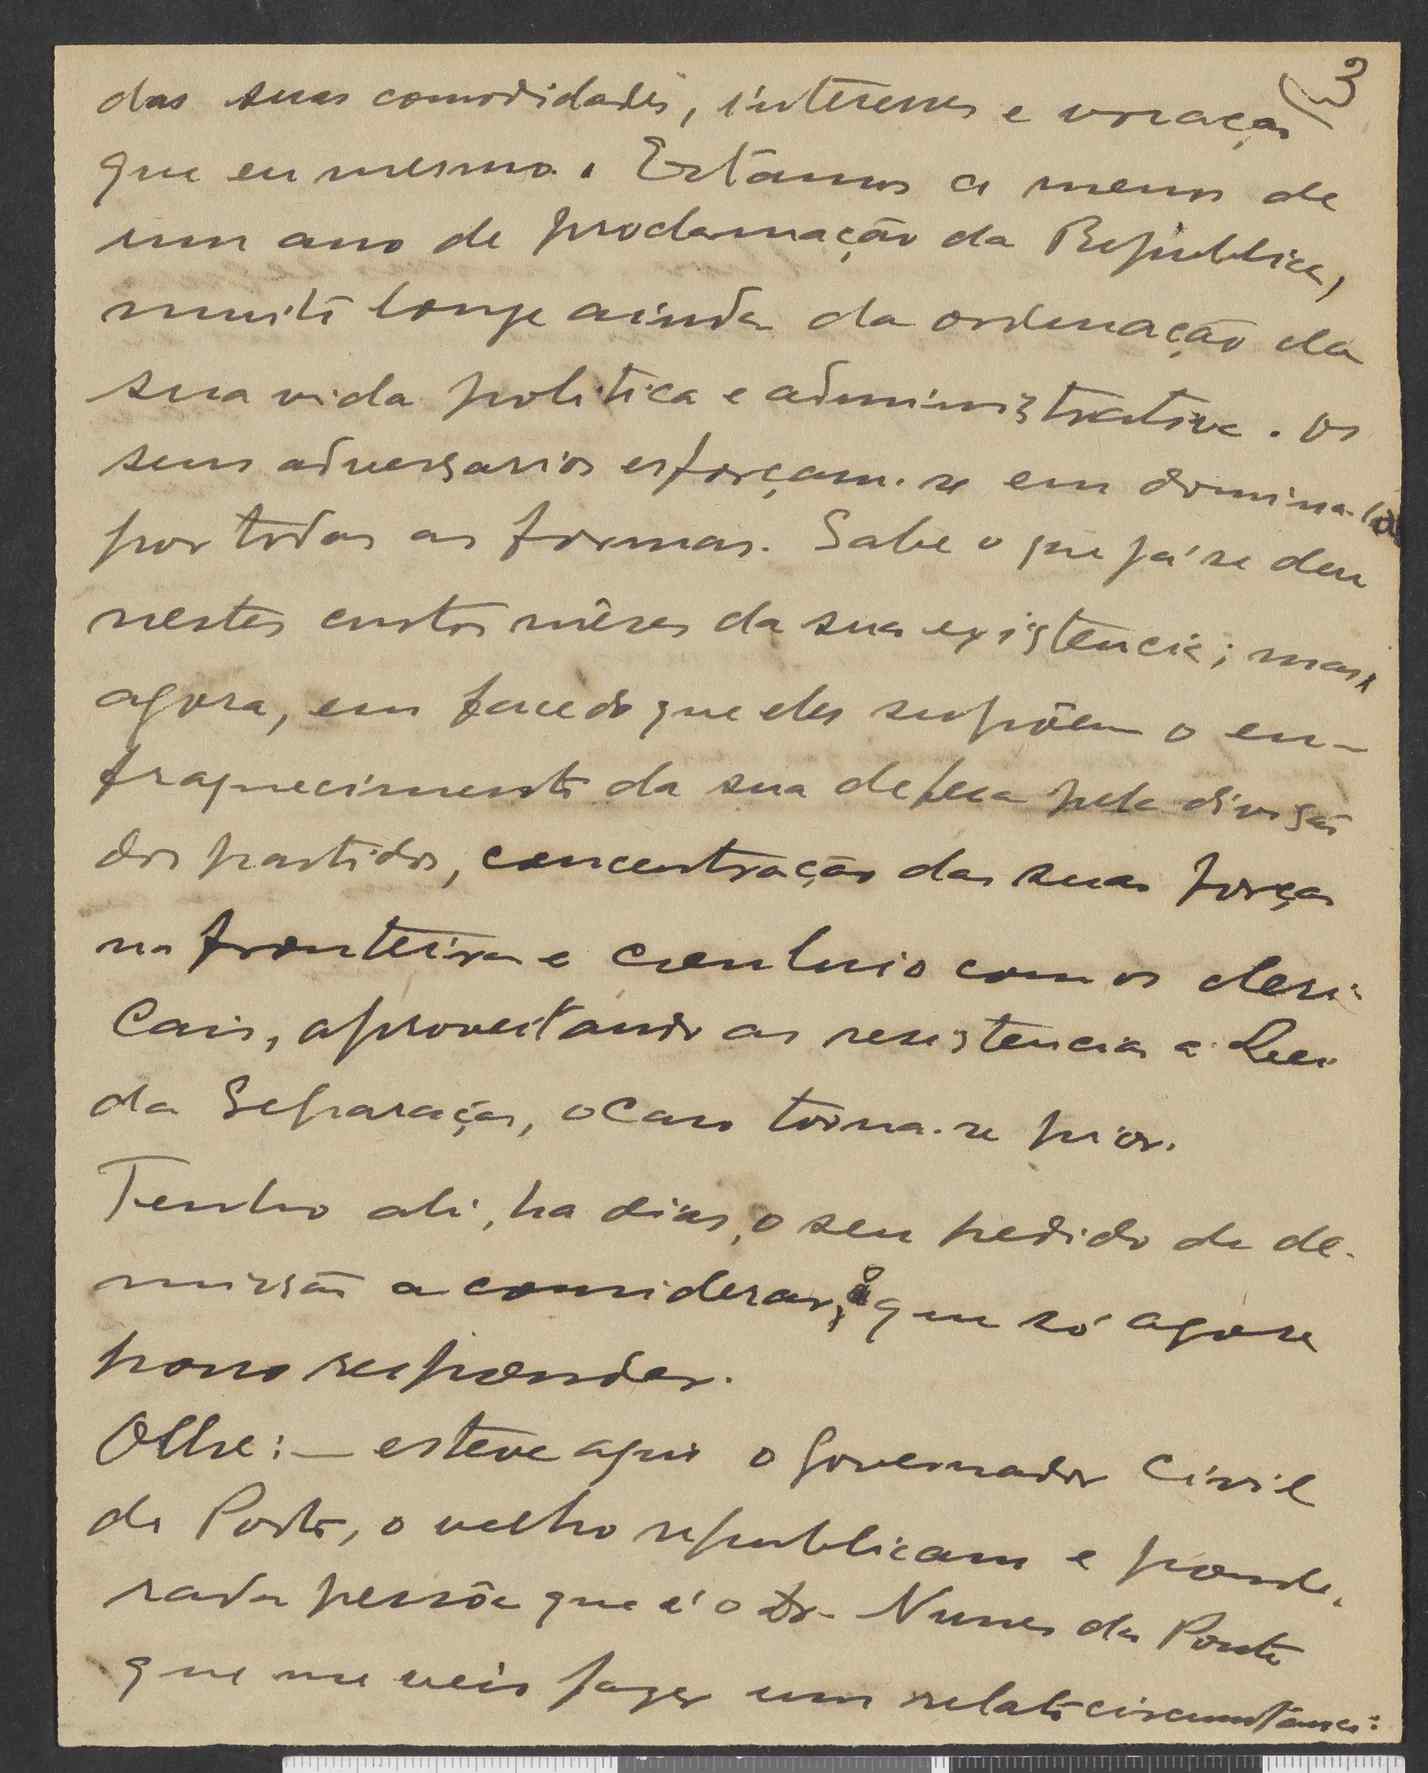 3
das suas comodidades, interesses e vocação
que eu mesmo. Estâmos a menos de
um ano de proclamação da Republica,
muito longe ainda da ordenação da
sua vida politica e administrativa. Os
seus adversarios esforçam-se em domina-la
por todas as formas. Sabe o que já se deu
nestes curtos mêses da sua existencia; mas,
agora, em face do que eles supõem o en-
fraquecimento da sua defesa pela divisão
dos partidos, concentração das suas forças
na fronteira e conluio com os cleri-
cais, aproveitando as resistencias á Lei
da Separação, o caso torna-se pior.
Tenho ali, ha dias, o seu pedido de de-
missão a considerar, a que só agora
posso responder.
Olhe: — esteve aqui o governador Civil
do Porto, o velho republicano e ponde-
rada pessôa que é o Dr. Nunes da Ponte
que me veio fazer um relato circumstanci-